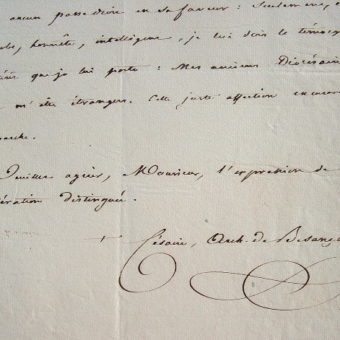 aucun passe-droit en sa faveur : Seulement,
honnête, intelligent, je lui dois le témoi
que je lui porte : Mes anciens Diocésains
m'être étrangers. Cette juste affection
arche.
Veuillez agréer, Monsieur, l'expression de
ération distinguée.
† Césaire, Arch. de Besanç